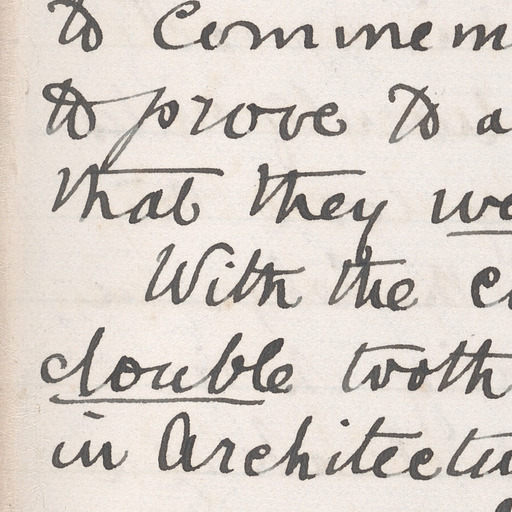 to commem
to prove to a
that they we
With the c
double tooth
in Architectu